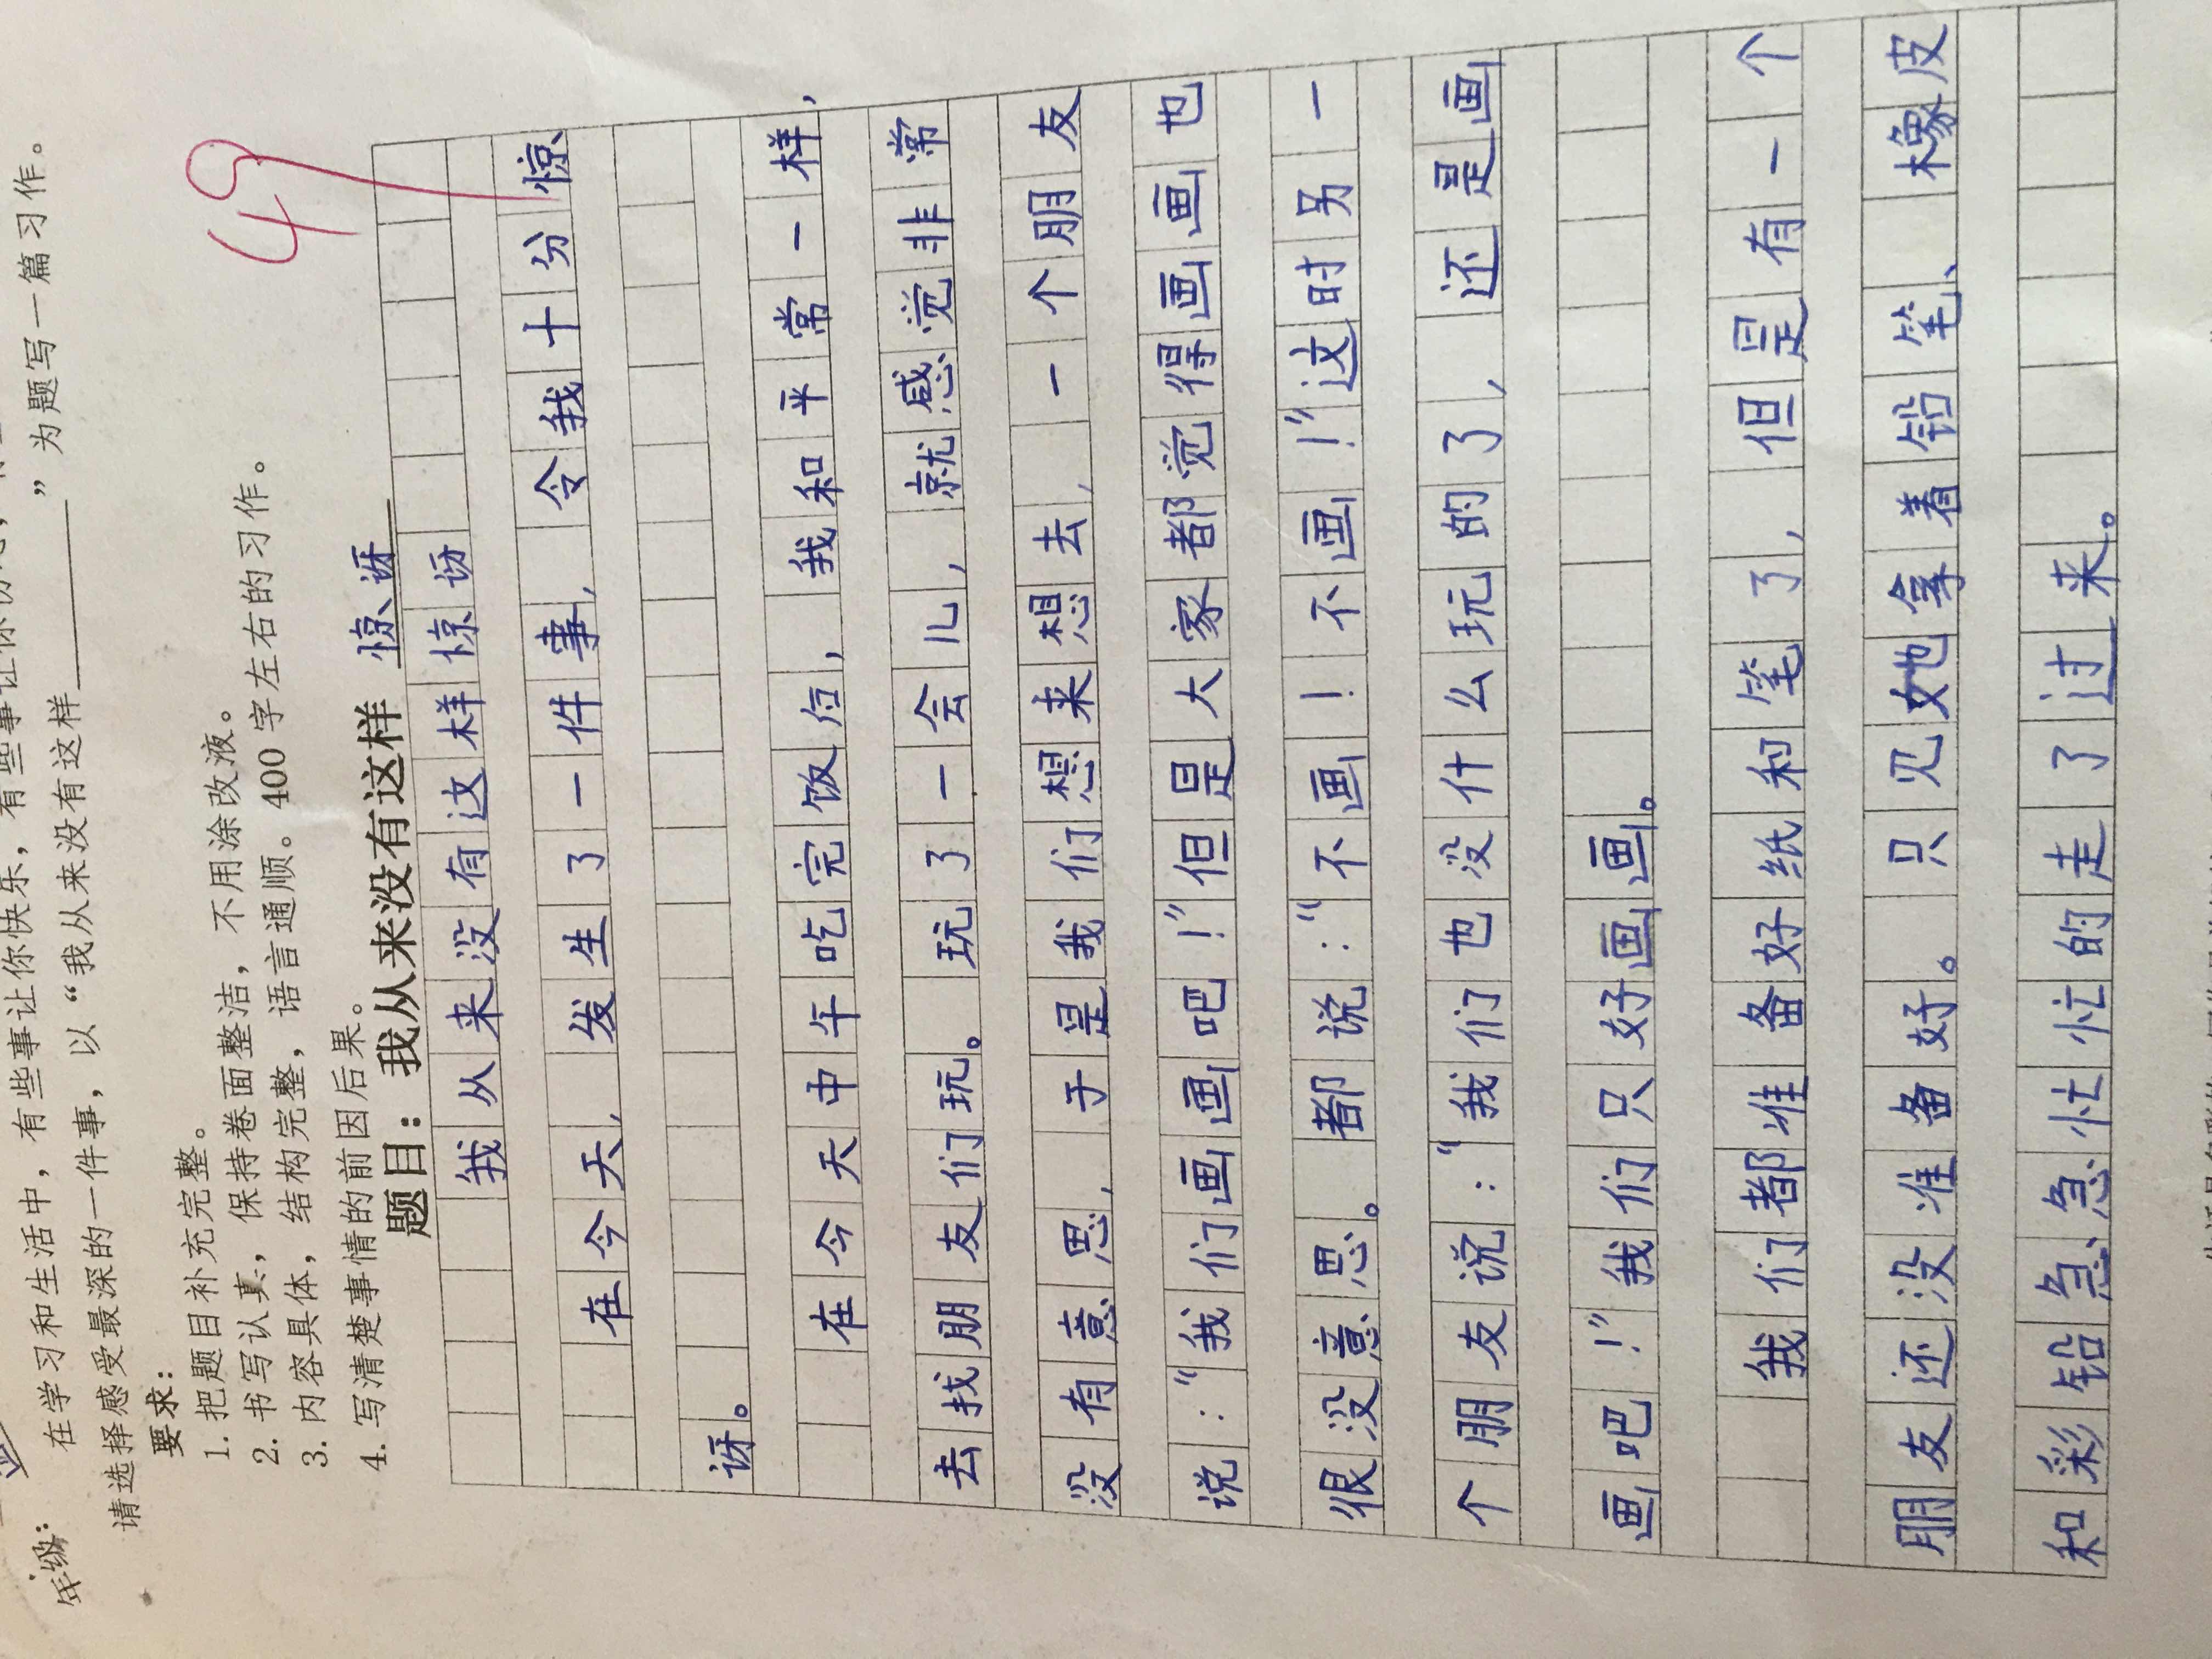 在学习和生活中，有些事让你快乐，有些事让你
请选择感受最深的一件事，以“我从来没有这样______”为题写一篇习作。
要求：
1. 把题目补充完整。
2. 书写认真，保持卷面整洁，不用涂改液。
3. 内容具体，结构完整，语言通顺。400字左右的习作。
4. 写清楚事情的前因后果。
49
题目：我从来没有这样 惊讶
我从来没有这样惊讶
在今天，发生了一件事，令我十分惊
讶。
在今天中午吃完饭后，我和平常一样，
去找朋友们玩。玩了一会儿，就感觉非常
没有意思，于是我们想来想去，一个朋友
说：“我们画画吧！”但是大家都觉得画画也
很没意思。都说：“不画！不画！”这时另一
个朋友说：“我们也没什么玩的了，还是画
画吧！”我们只好画画。
我们都准备好纸和笔了，但是有一个
朋友还没准备好。只见她拿着铅笔、橡皮
和彩铅急急忙忙的走了过来。